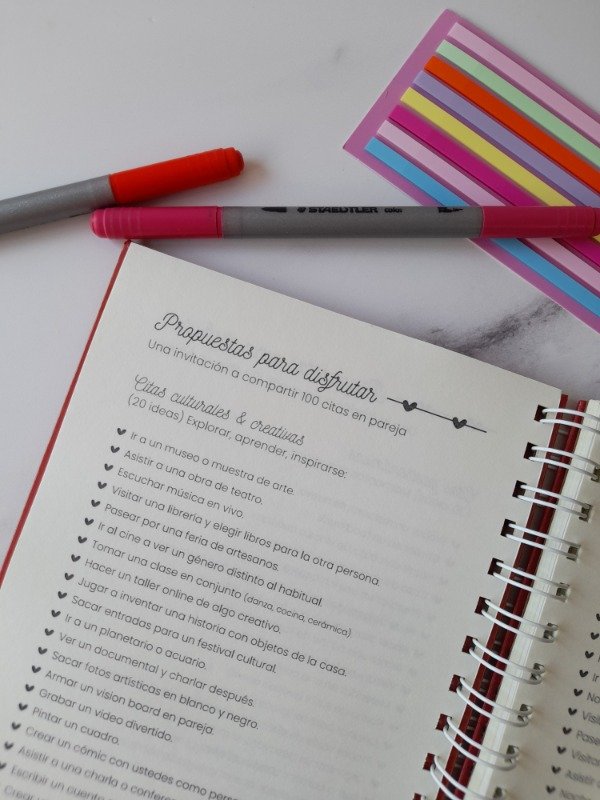 STAEDTLER color
Propuestas para disfrutar
Una invitación a compartir 100 citas en pareja
Citas culturales & creativas
(20 ideas) Explorar, aprender, inspirarse:
Ir a un museo o muestra de arte.
Asistir a una obra de teatro.
Escuchar música en vivo.
Visitar una librería y elegir libros para la otra persona.
Pasear por una feria de artesanos.
Ir al cine a ver un género distinto al habitual.
Tomar una clase en conjunto (danza, cocina, cerámica)
Hacer un taller online de algo creativo.
Jugar a inventar una historia con objetos de la casa.
Sacar entradas para un festival cultural.
Ir a un planetario o acuario.
Ver un documental y charlar después.
Sacar fotos artísticas en blanco y negro.
Armar un vision board en pareja.
Grabar un video divertido.
Pintar un cuadro.
Crear un cómic con ustedes como
Asistir a una charla o
Escribir un cuento
Crear
Ir